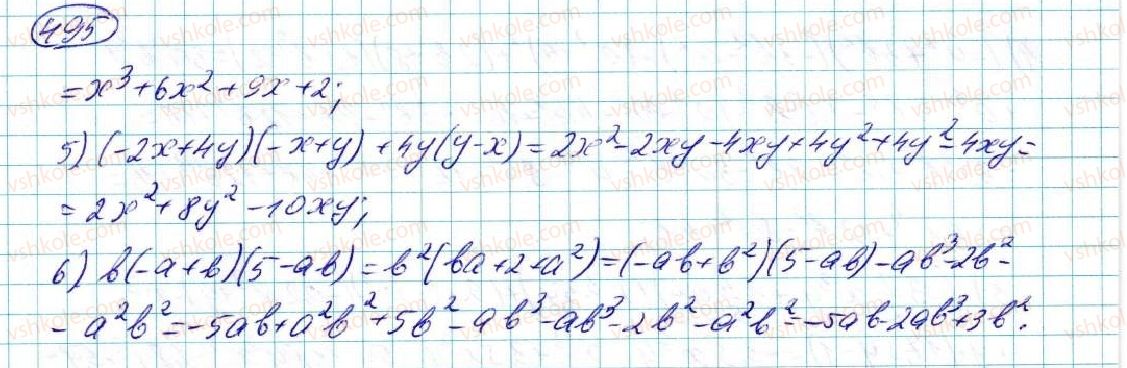 495
= x³ + 6x² + 9x + 2;
5) (-2x+4y)(-x+y) + 4y(y-x) = 2x² - 2xy - 4xy + 4y² + 4y² - 4xy =
= 2x² + 8y² - 10xy;
6) b(-a+b)(5-ab) = b²(ba+2+a²) = (-ab+b²)(5-ab) - ab³ - 2b² -
- a²b² = -5ab + a²b² + 5b² - ab³ - ab³ - 2b² - a²b² = -5ab - 2ab³ + 3b².
vshkole.com